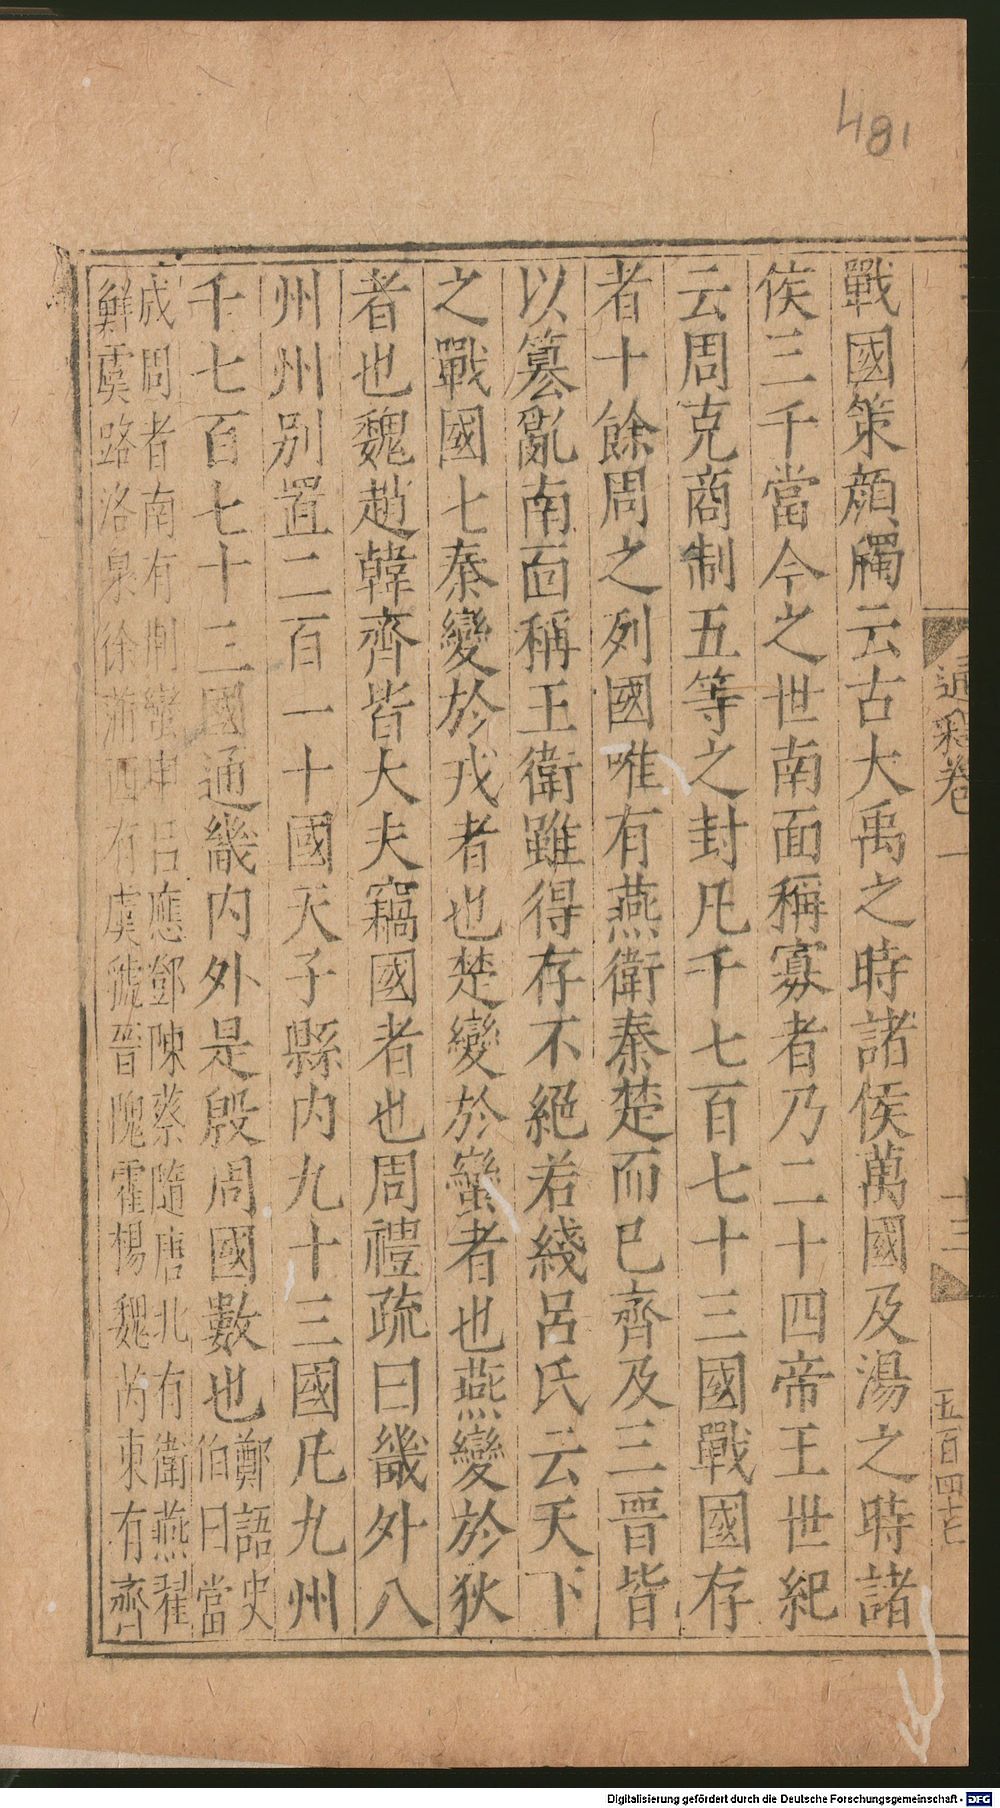 481
通釋卷一
十三
五百四七
戰國策顔斶云古大禹之時諸侯萬國及湯之時諸
侯三千當今之世南面稱寡者乃二十四帝王世紀
云周克商制五等之封凡千七百七十三國戰國存
者十餘周之列國唯有燕衛秦楚而已齊及三晉皆
以簒亂南面稱王衛雖得存不絕若綫呂氏云天下
之戰國七秦變於戎者也楚變於蠻者也燕變於狄
者也魏趙韓齊皆大夫竊國者也周禮疏曰畿外八
州州別置二百一十國天子縣内九十三國凡九州
千七百七十三國通畿内外是殷周國數也
鄭語史
伯曰當
成周者南有荆蠻申呂應鄧陳蔡隨唐北有衛燕翟
鮮虞路洛泉徐蒲西有虞虢晉隗霍楊魏芮東有齊
Digitalisierung gefördert durch die Deutsche Forschungsgemeinschaft - DFG